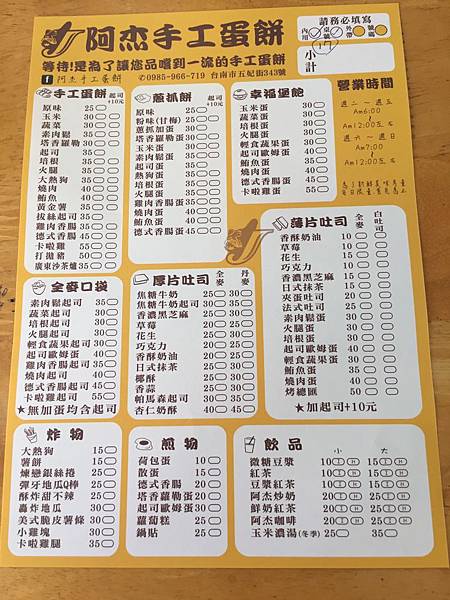 阿杰手工蛋餅
請務必填寫
內用 桌號 外帶 號碼
17
小計
等待!是為了讓您品嚐到一流的手工蛋餅
f 阿杰手工蛋餅 ✆0985-966-719 台南市五妃街343號
營業時間
週二~週五
Am6:00
Am12:00左右
週六~週日
Am7:00
Am12:00左右
手工蛋餅 起司+10元
原味 25
玉米 30
蔬菜 30
素肉鬆 35
塔香羅勒 30
起司 35
培根 35
火腿 35
大熱狗 35
燒肉 40
鮪魚 40
黃金薯 35
拔絲起司 35
雞肉香腸 35
德式香腸 45
卡啦雞 55
打拋豬 50
廣東沙茶爐 35
蔥抓餅 起司+10元
原味 25
粉味(甘梅) 25
蔥抓加蛋 30
塔香羅勒蛋 35
玉米蛋 35
蔬菜蛋 35
素肉鬆蛋 35
起司蛋 35
熱狗蛋 35
培根蛋 35
火腿蛋 35
雞肉香腸蛋 35
燒肉蛋 40
鮪魚蛋 40
德式香腸蛋 45
幸福堡飽
玉米蛋 30
蔬菜蛋 30
素肉鬆蛋 35
培根蛋 35
火腿蛋 35
輕食蔬果蛋 30
起司歐姆蛋 35
燒肉蛋 40
鮪魚蛋 40
德式香腸蛋 45
卡啦雞蛋 55
薄片吐司 全麥 白吐司
香酥奶油 10
草莓 10
花生 10
巧克力 10
香濃黑芝麻 15
日式抹茶 15
夾蛋吐司 20
法式吐司 25
素肉鬆蛋 30
火腿蛋 30
培根蛋 30
起司歐姆蛋 30
輕食蔬果蛋 30
鮪魚蛋 35
德式香腸蛋 40
烤總匯 50
★加起司+10元
全麥口袋
素肉鬆起司 35
蔬菜起司 30
培根起司 35
火腿起司 35
輕食蔬果起司 30
起司歐姆蛋 35
雞肉香腸起司 35
燒肉起司 40
德式香腸起司 45
卡啦雞起司 55
★無加蛋均含起司
厚片吐司 全麥 丹麥
焦糖牛奶 25 30
焦糖牛奶起司 30 35
香濃黑芝麻 25 30
草莓 20 25
花生 20 25
巧克力 20 25
香酥奶油 20 25
日式抹茶 25 30
椰酥 25 30
香蒜 25 30
帕馬森起司 30 35
杏仁奶酥 40 45
炸物
大熱狗 15
薯餅 15
煉戀銀絲捲 20
彈牙地瓜Q棒 25
酥炸甜不辣 25
轟炸地瓜 30
美式脆皮薯條 30
小雞塊 30
卡啦雞腿 35
煎物
荷包蛋 10
散蛋 15
德式香腸 20
塔香羅勒蛋 20
起司歐姆蛋 30
蘿蔔糕 25
鍋貼 25
飲品 小 大
微糖豆漿 10 15
紅茶 10 15
豆漿紅茶 10 15
阿杰炒奶 20 25
鮮奶紅茶 20 25
阿杰咖啡 20 25
玉米濃湯(冬季) 25 35